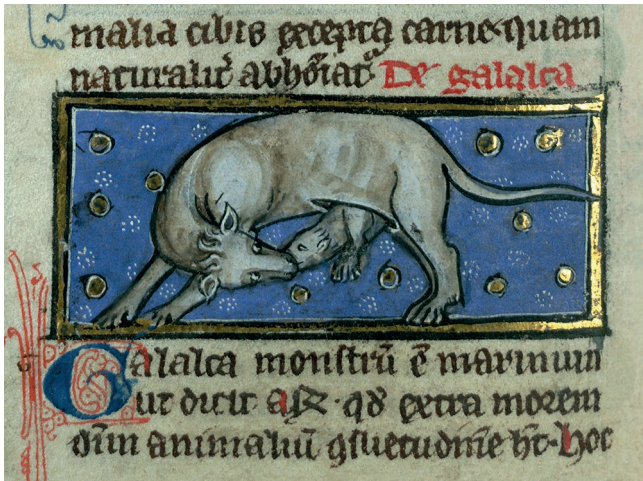 malia cibis excepta carne quam
naturalit̾ abhoĩat᷑ De galalca
Galalca monstrũ ẽ marinum
ut dicit ar̃. qđ extra morem
oĩm animaliũ ꝯsuetudinẽ hʼt. hoc